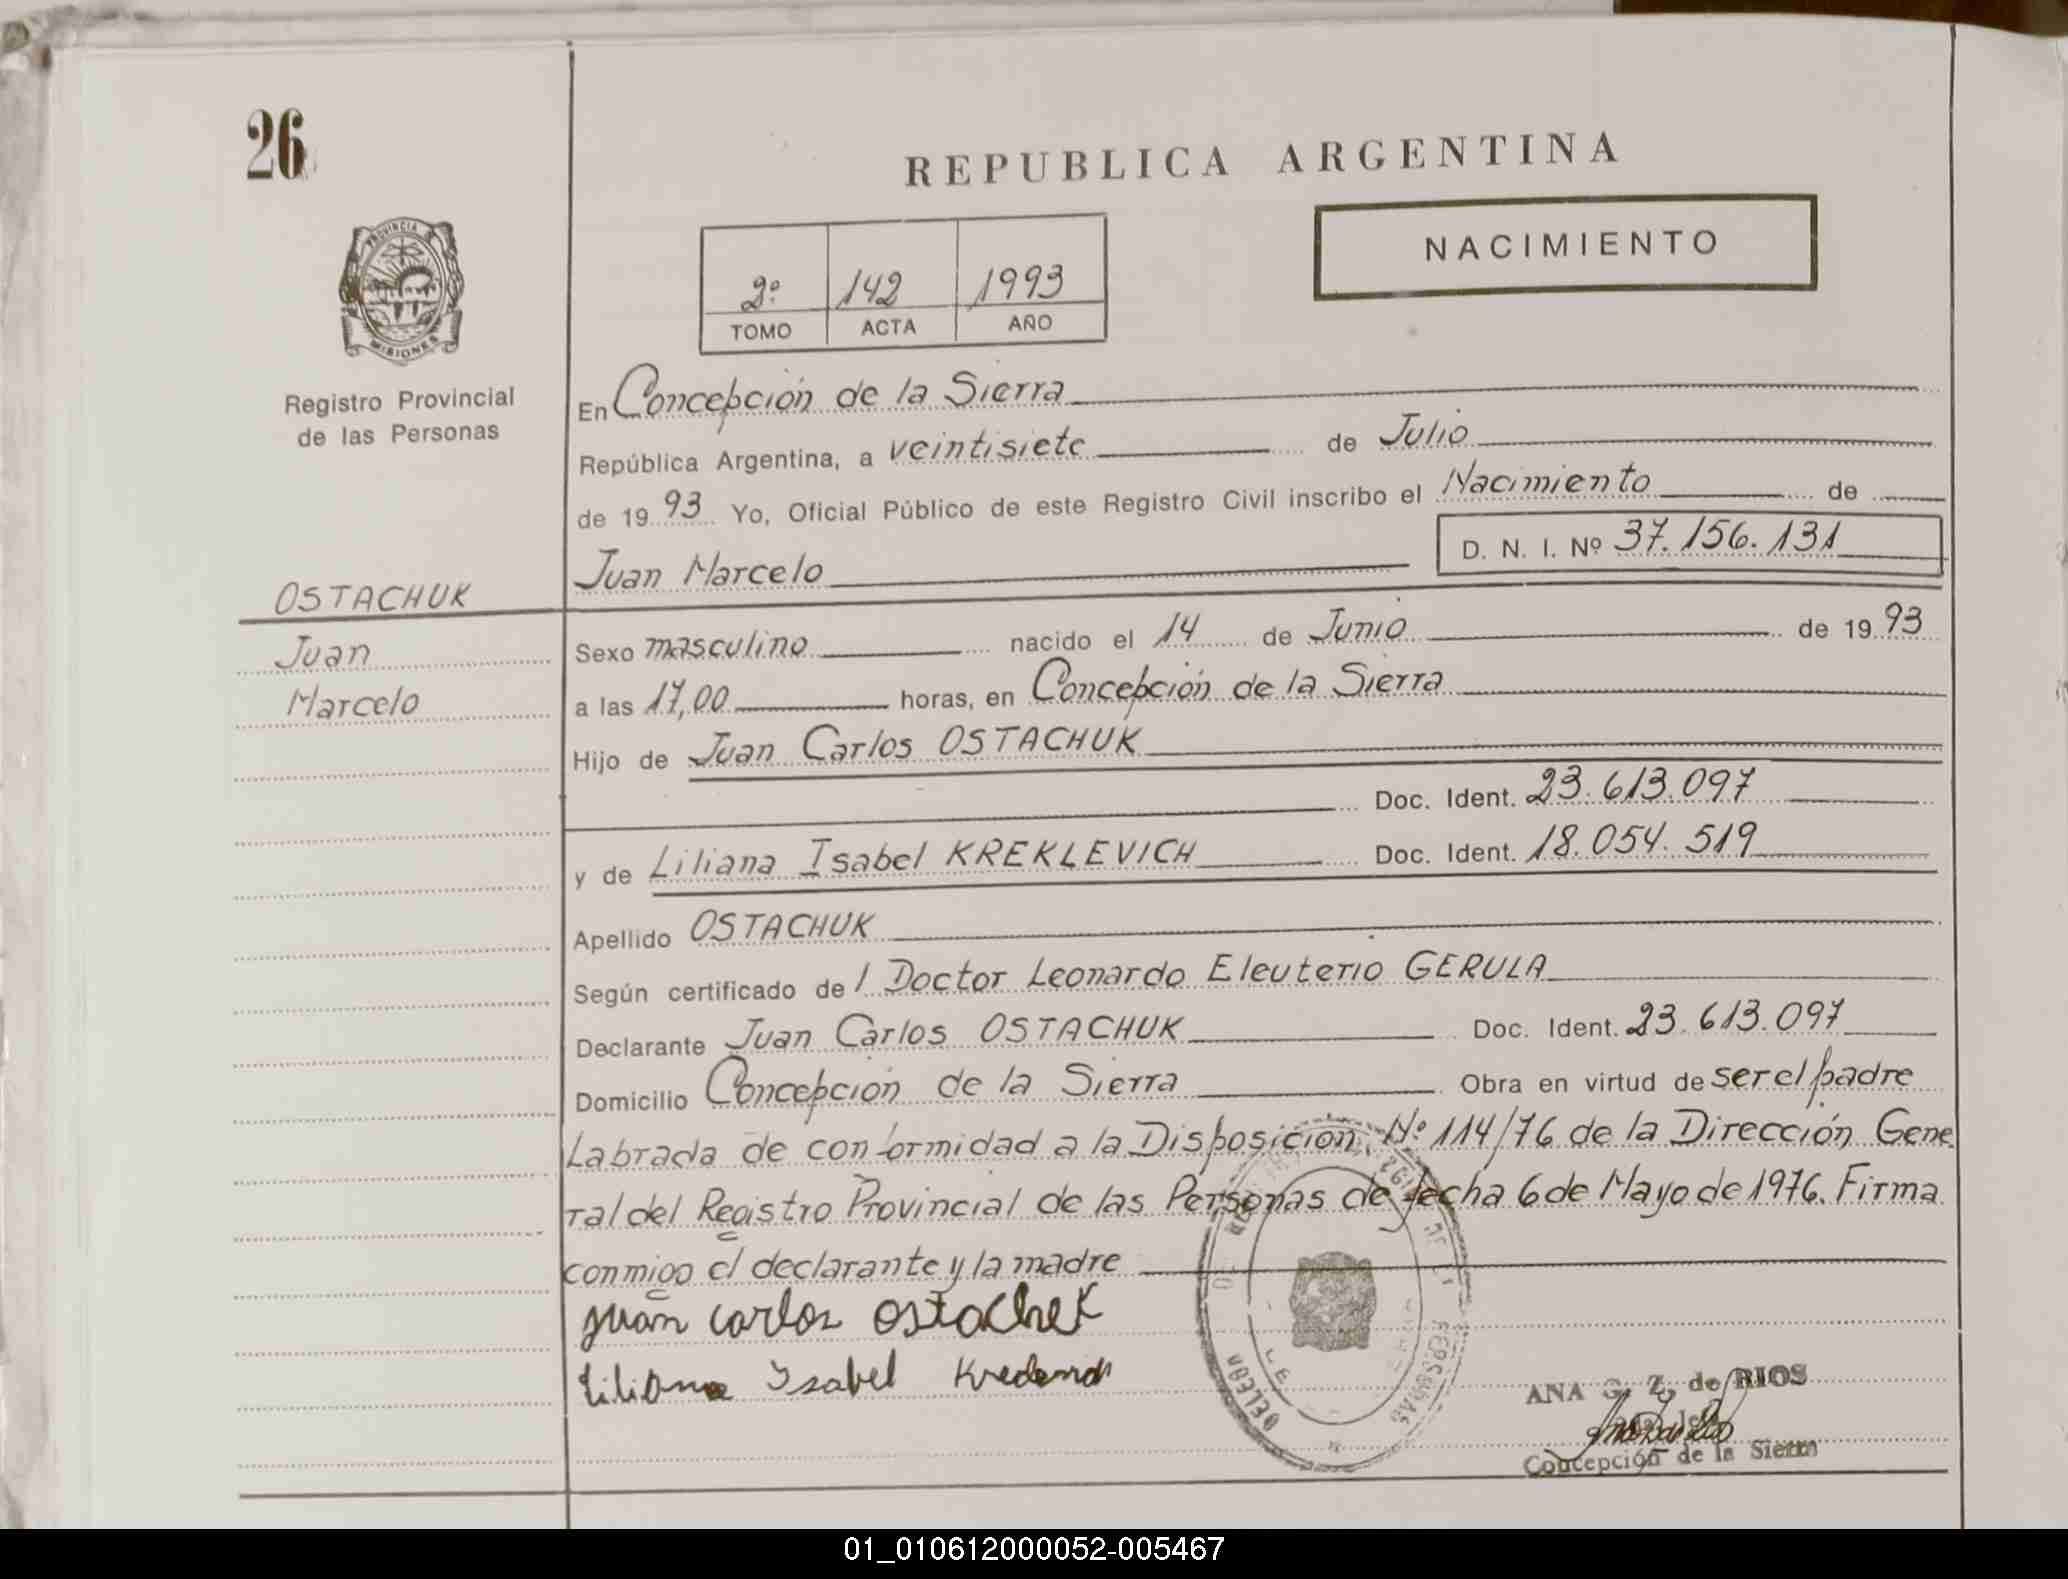 26
REPUBLICA ARGENTINA
NACIMIENTO
2º 142 1993
TOMO ACTA AÑO
PROVINCIA
MISIONES
Registro Provincial
de las Personas
En Concepción de la Sierra
República Argentina, a veintisiete de Julio
de 19 93 Yo, Oficial Público de este Registro Civil inscribo el Nacimiento de
Juan Marcelo D. N. I. Nº 37.156.131
OSTACHUK
Juan
Marcelo
Sexo masculino nacido el 14 de Junio de 19 93
a las 17,00 horas, en Concepción de la Sierra
Hijo de Juan Carlos OSTACHUK
Doc. Ident. 23.613.097
y de Liliana Isabel KREKLEVICH Doc. Ident. 18.054.519
Apellido OSTACHUK
Según certificado de l Doctor Leonardo Eleuterio GERULA
Declarante Juan Carlos OSTACHUK Doc. Ident. 23.613.097
Domicilio Concepción de la Sierra Obra en virtud de ser el padre
Labrada de conformidad a la Disposición Nº 114/76 de la Dirección Gene
ral del Registro Provincial de las Personas de fecha 6 de Mayo de 1976. Firma
conmigo el declarante y la madre
Juan carlos Ostachek
Liliana Isabel
ANA G. Z. de RIOS
Concepción de la Sierra
01_010612000052-005467